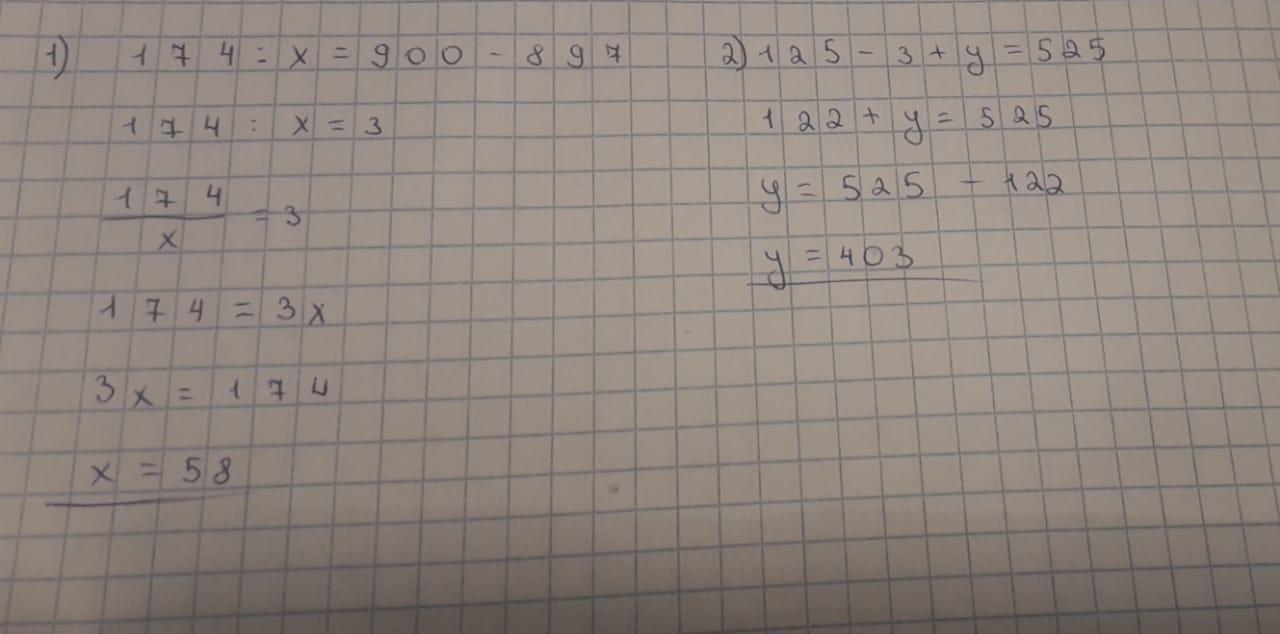 1) 174 : x = 900 - 897
174 : x = 3
174
x
= 3
174 = 3x
3x = 174
x = 58
2) 125 - 3 + y = 525
122 + y = 525
y = 525 - 122
y = 403